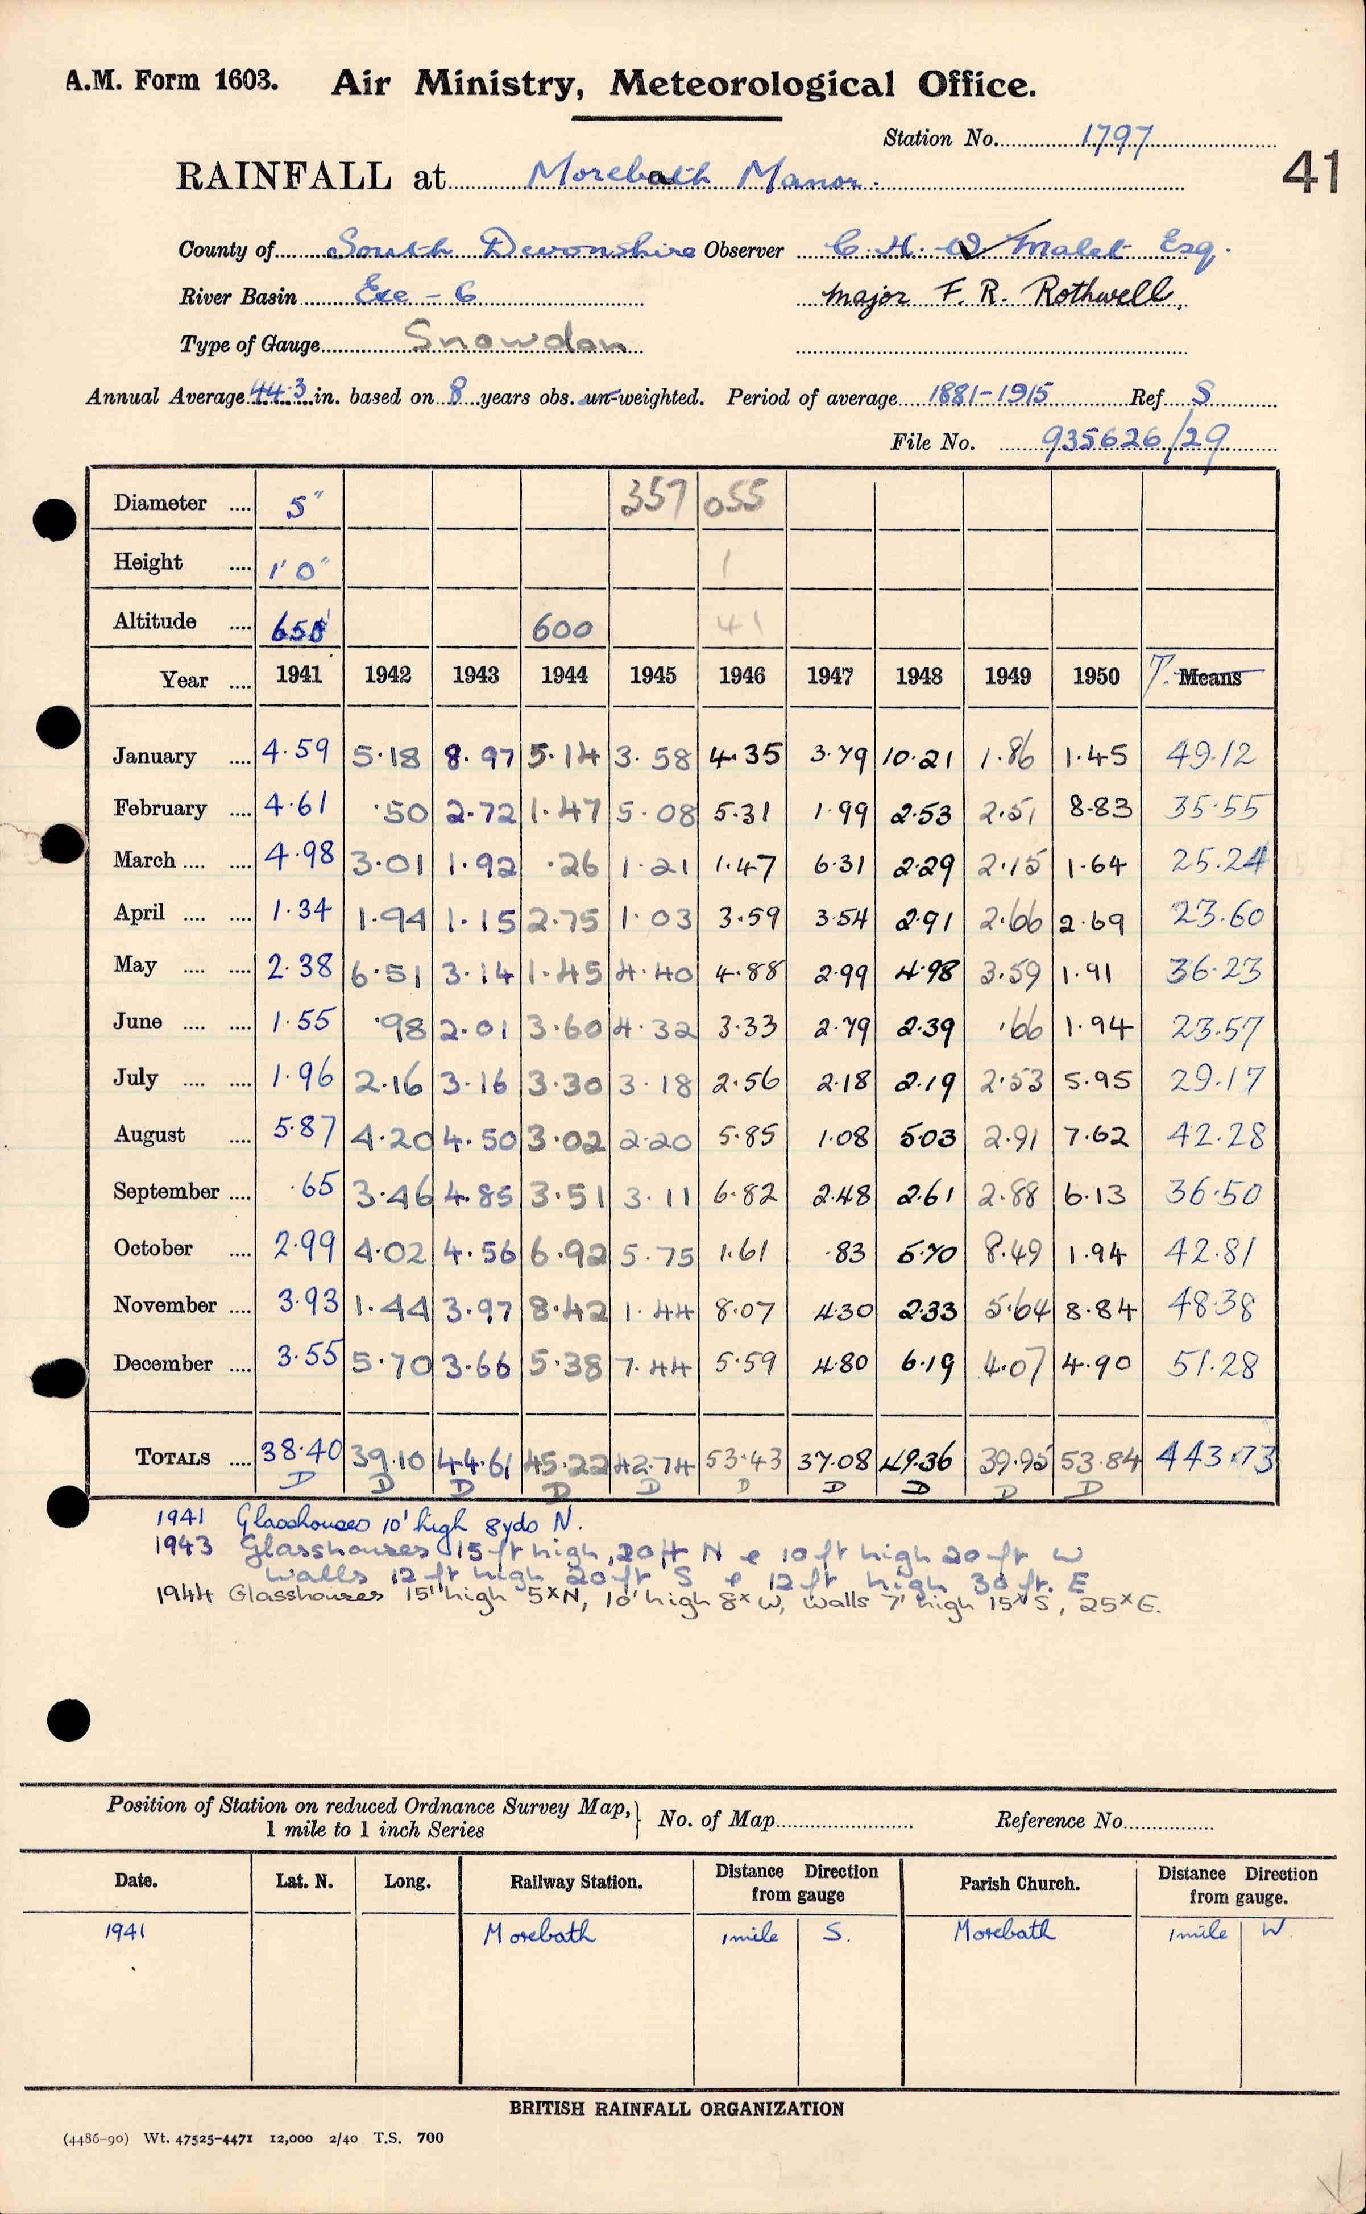 A.M. Form 1603. Air Ministry, Meteorological Office.
Station No. 1797
RAINFALL at Morebath Manor. 41
County of South Devonshire Observer C. H. W Malet Esq.
River Basin Exe - 6 Major F. R. Rothwell.
Type of Gauge Snowdon
Annual Average 44.3 in. based on 8 years obs. un-weighted. Period of average 1881-1915 Ref S
File No. 935626/29
Diameter .... 5" 357 055
Height .... 1'0" 1
Altitude .... 600 41
Year .... 1941 1942 1943 1944 1945 1946 1947 1948 1949 1950 T. Means
January .... 4.59 5.18 8.97 5.14 3.58 4.35 3.79 10.21 1.86 1.45 49.12
February .... 4.61 .50 2.72 1.47 5.08 5.31 1.99 2.53 2.51 8.83 35.55
March .... .... 4.98 3.01 1.92 .26 1.21 1.47 6.31 2.29 2.15 1.64 25.24
April .... .... 1.34 1.94 1.15 2.75 1.03 3.59 3.54 2.91 2.66 2.69 23.60
May .... .... 2.38 6.51 3.14 1.45 4.40 4.88 2.99 4.98 3.59 1.91 36.23
June .... .... 1.55 .98 2.01 3.60 4.32 3.33 2.79 2.39 .66 1.94 23.57
July .... .... 1.96 2.16 3.16 3.30 3.18 2.56 2.18 2.19 2.53 5.95 29.17
August .... 5.87 4.20 4.50 3.02 2.20 5.85 1.08 5.03 2.91 7.62 42.28
September .... .65 3.46 4.85 3.51 3.11 6.82 2.48 2.61 2.88 6.13 36.50
October .... 2.99 4.02 4.56 6.92 5.75 1.61 .83 5.70 8.49 1.94 42.81
November .... 3.93 1.44 3.97 8.42 1.44 8.07 4.30 2.33 5.64 8.84 48.38
December .... 3.55 5.70 3.66 5.38 7.44 5.59 4.80 6.19 4.07 4.90 51.28
TOTALS .... 38.40 39.10 44.61 45.22 42.74 53.43 37.08 49.36 39.95 53.84 443.73
D D D D D D D D D D
1941 Glasshouses 10' high 8yds N.
1943 Glasshouses 15ft high, 20ft N & 10ft high 20ft W
Walls 12ft high 20ft S & 12ft high 30ft. E
1944 Glasshouses 15' high 5ˣN, 10' high 8ˣW, walls 7' high 15ˣS, 25ˣE.
Position of Station on reduced Ordnance Survey Map, } No. of Map Reference No.
1 mile to 1 inch Series
Date. Lat. N. Long. Railway Station. Distance Direction from gauge Parish Church. Distance Direction from gauge.
1941 Morebath 1mile S. Morebath 1mile W.
BRITISH RAINFALL ORGANIZATION
(4486-90) Wt. 47525-4471 12,000 2/40 T.S. 700